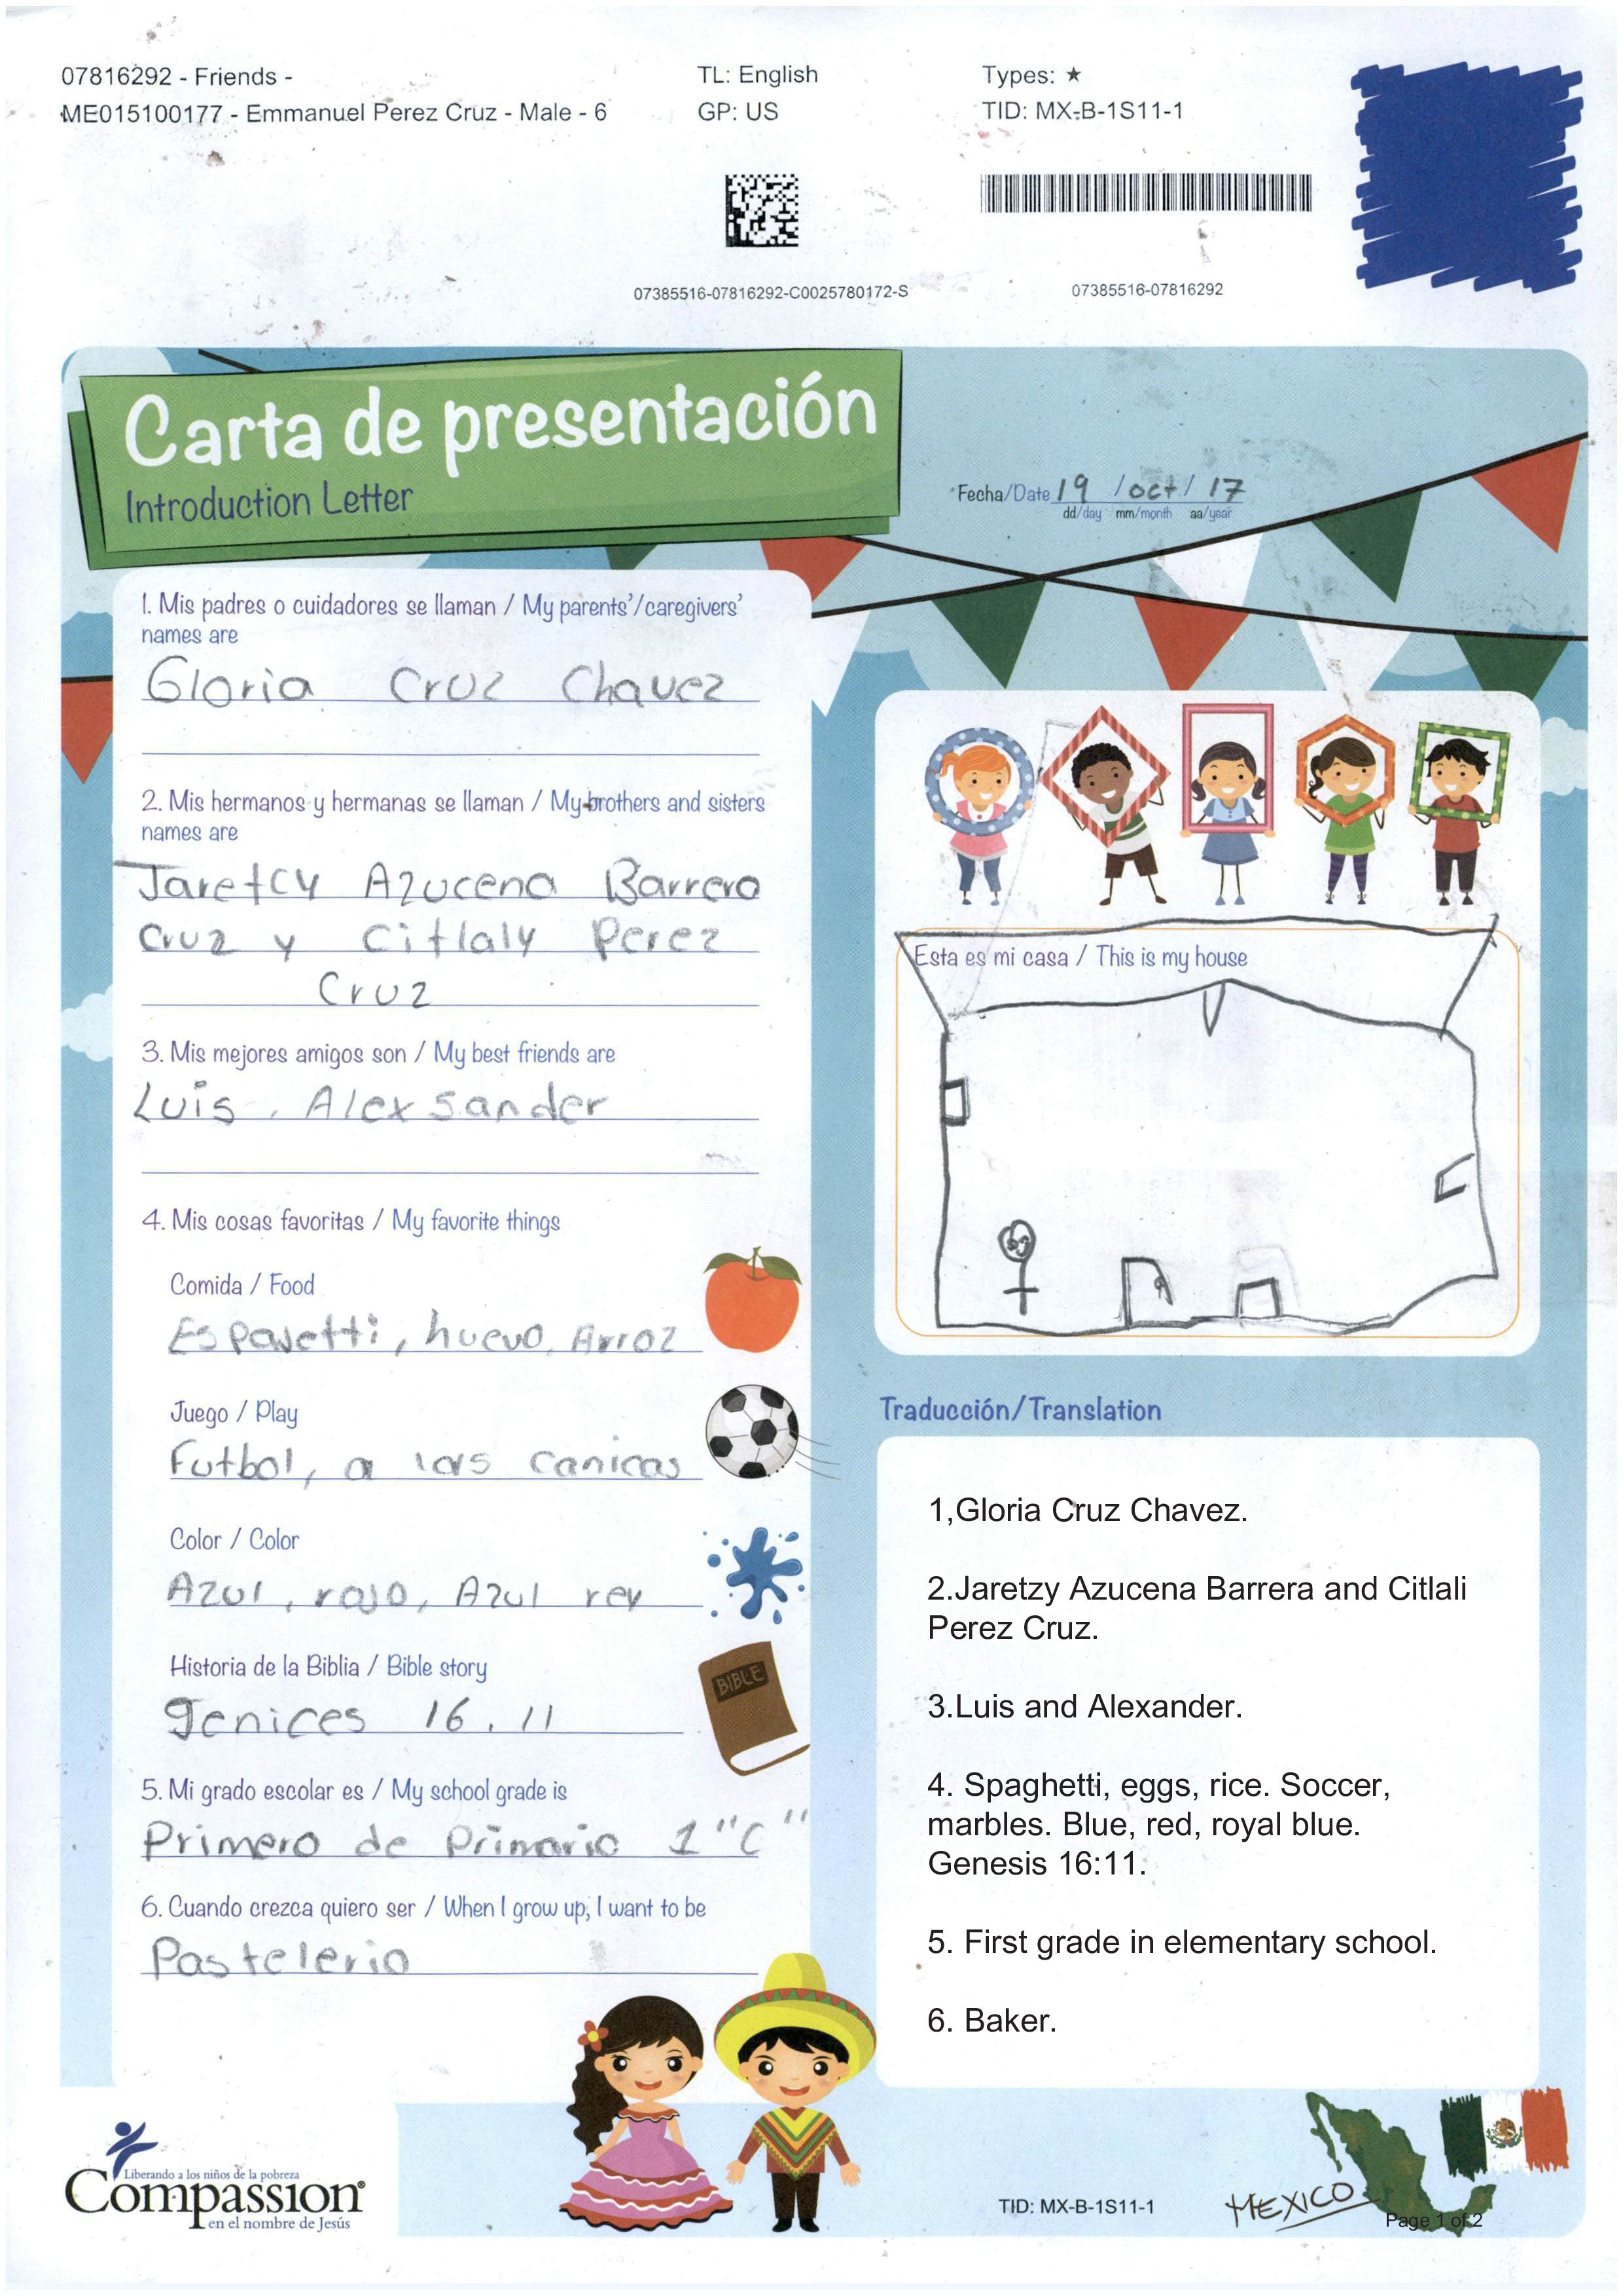 07816292 - Friends -
ME015100177 - Emmanuel Perez Cruz - Male - 6
TL: English
GP: US
Types: ★
TID: MX-B-1S11-1
07385516-07816292-C0025780172-S
07385516-07816292
Carta de presentación
Introduction Letter
Fecha/Date 19 / oct / 17
dd/day mm/month aa/year
1. Mis padres o cuidadores se llaman / My parents'/caregivers'
names are
Gloria Cruz Chavez
2. Mis hermanos y hermanas se llaman / My brothers and sisters
names are
Jaretcy Azucena Barrera
Cruz y Citlaly Perez
Cruz
3. Mis mejores amigos son / My best friends are
Luis, Alexsander
4. Mis cosas favoritas / My favorite things
Comida / Food
huevo, Arroz
Juego / Play
Futbol, a las canicas
Color / Color
Azul, rojo, Azul rey
Historia de la Biblia / Bible story
BIBLE
genices 16. 11
5. Mi grado escolar es / My school grade is
Primero de Primaria 1 "C"
6. Cuando crezca quiero ser / When I grow up, I want to be
Pasteleria
Esta es mi casa / This is my house
Traducción/Translation
1,Gloria Cruz Chavez.
2.Jaretzy Azucena Barrera and Citlali
Perez Cruz.
3.Luis and Alexander.
4. Spaghetti, eggs, rice. Soccer,
marbles. Blue, red, royal blue.
Genesis 16:11.
5. First grade in elementary school.
6. Baker.
Liberando a los niños de la pobreza
Compassion®
en el nombre de Jesús
TID: MX-B-1S11-1
MEXICO
Page 1 of 2